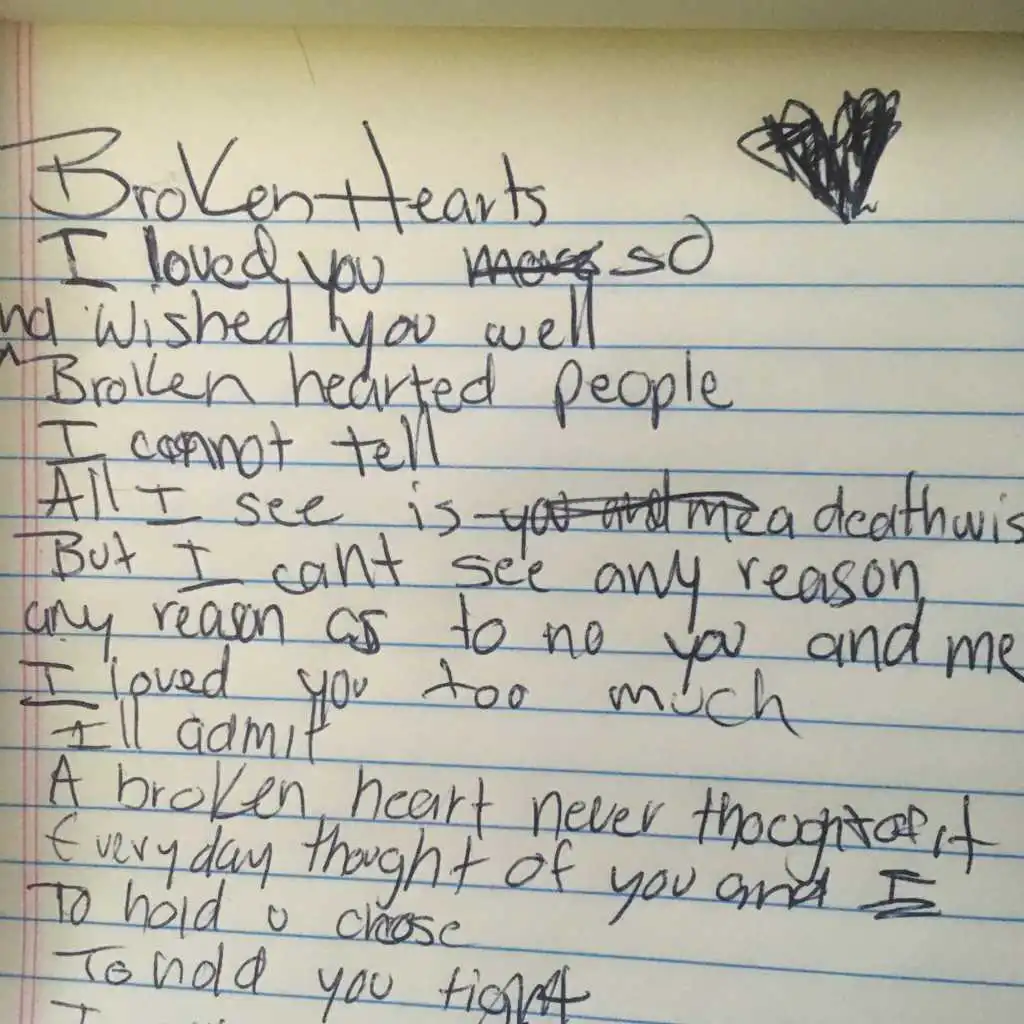 Broken Hearts
I loved you so
nd Wished you well
Broken hearted people
I cannot tell
All I see is a deathwis
But I cant see any reason
any reason as to no you and me
I loved you too much
Ill admit
A broken heart never thought of it
Everyday thought of you and I
To hold u close
To hold you tight
I